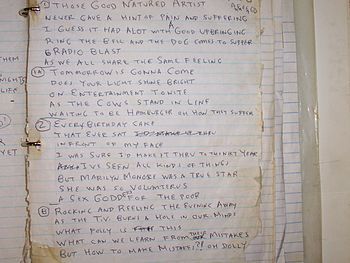 ① Those Good Natured Artist
Never Gave A Hint of Pain and Suffering
A
I Guess it Had Alot with Good Upbringing
Ring the Bell and the Dog Comes to Supper
& Radio Blast
As we All Share the Same Feeling
①A Tomorrow is Gonna Come
Does Your Light Shine Bright
On Entertainment Tonite
As the Cows Stand in Line
Waiting to be Hamburger oh How this Suffer
② Every Birthday Cake
That Ever Sat
In Front of My Face
I was Sure I'd Make it Thru to Thinkt Year
I've Seen All Kinds of Things
But Marilyn Monore was A True Star
She was so Volumterus
A Sex Goddess For the Poor
Ⓑ Rocking and Reeling the Evening Away
As the T.V. Burns A Hole in our Minds
What Foly is this
What can we Learn From these Mistakes
But How to Make Mistakes?! Oh Dolly
Them
Nights
Life
Yet